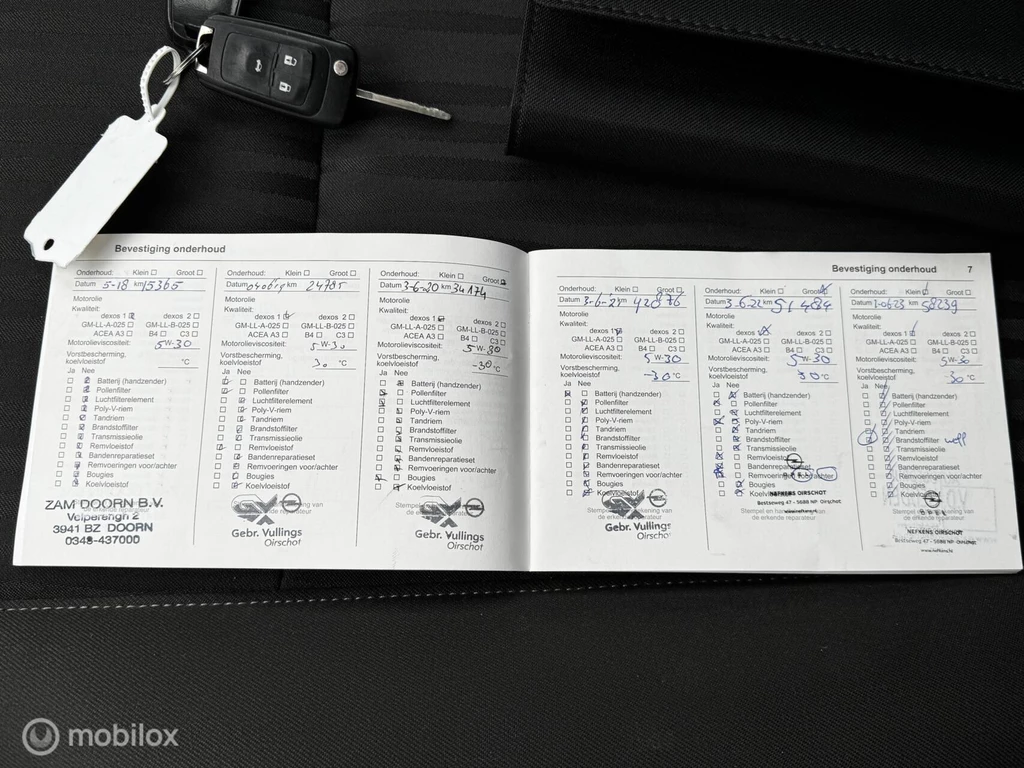 Bevestiging onderhoud
Onderhoud: Klein Groot
Datum 5-18 km 15365
Motorolie
Kwaliteit:
dexos 1 dexos 2
GM-LL-A-025 GM-LL-B-025
ACEA A3 B4 C3
Motorolieviscositeit: 5W-30
Vorstbescherming,
koelvloeistof °C
Ja Nee
Batterij (handzender)
Pollenfilter
Luchtfilterelement
Poly-V-riem
Tandriem
Brandstoffilter
Transmissieolie
Remvloeistof
Bandenreparatieset
Remvoeringen voor/achter
Bougies
Koelvloeistof
ZAM DOORN B.V.
Velperengh 2
3941 BZ DOORN
0343-437000
Onderhoud: Klein Groot
Datum km 24785
Motorolie
Kwaliteit:
dexos 1 dexos 2
GM-LL-A-025 GM-LL-B-025
ACEA A3 B4 C3
Motorolieviscositeit: 5W-30
Vorstbescherming,
koelvloeistof 30 °C
Ja Nee
Batterij (handzender)
Pollenfilter
Luchtfilterelement
Poly-V-riem
Tandriem
Brandstoffilter
Transmissieolie
Remvloeistof
Bandenreparatieset
Remvoeringen voor/achter
Bougies
Koelvloeistof
Gebr. Vullings
Oirschot
Onderhoud: Klein Groot
Datum 3-6-20 km 34174
Motorolie
Kwaliteit:
dexos 1 dexos 2
GM-LL-A-025 GM-LL-B-025
ACEA A3 B4 C3
Motorolieviscositeit: 5W-30
Vorstbescherming,
koelvloeistof -30 °C
Ja Nee
Batterij (handzender)
Pollenfilter
Luchtfilterelement
Poly-V-riem
Tandriem
Brandstoffilter
Transmissieolie
Remvloeistof
Bandenreparatieset
Remvoeringen voor/achter
Bougies
Koelvloeistof
Gebr. Vullings
Oirschot
Bevestiging onderhoud 7
Onderhoud: Klein Groot
Datum 3-6-21 km 42876
Motorolie
Kwaliteit:
dexos 1 dexos 2
GM-LL-A-025 GM-LL-B-025
ACEA A3 B4 C3
Motorolieviscositeit: 5W-30
Vorstbescherming,
koelvloeistof -30 °C
Ja Nee
Batterij (handzender)
Pollenfilter
Luchtfilterelement
Poly-V-riem
Tandriem
Brandstoffilter
Transmissieolie
Remvloeistof
Bandenreparatieset
Remvoeringen voor/achter
Bougies
Koelvloeistof
Gebr. Vullings
Oirschot
Onderhoud: Klein Groot
Datum 3-6-22 km 51484
Motorolie
Kwaliteit:
dexos 1 dexos 2
GM-LL-A-025 GM-LL-B-025
ACEA A3 B4 C3
Motorolieviscositeit: 5W-30
Vorstbescherming,
koelvloeistof 30 °C
Ja Nee
Batterij (handzender)
Pollenfilter
Luchtfilterelement
Poly-V-riem
Tandriem
Brandstoffilter
Transmissieolie
Remvloeistof
Bandenreparatieset
Remvoeringen voor/achter
Bougies
NEFKENS OIRSCHOT
Bestseweg 47 - 5688 NP Oirschot
de erkende reparateur
Onderhoud: Klein Groot
Datum 1-0623 km 58239
Motorolie
Kwaliteit:
dexos 1 dexos 2
GM-LL-A-025 GM-LL-B-025
ACEA A3 B4 C3
Motorolieviscositeit: 5W-30
Vorstbescherming,
koelvloeistof -30 °C
Ja Nee
Batterij (handzender)
Pollenfilter
Luchtfilterelement
Poly-V-riem
Tandriem
Brandstoffilter
Transmissieolie
Remvloeistof
Bandenreparatieset
Remvoeringen voor/achter
Bougies
OPEL
NEFKENS OIRSCHOT
Bestseweg 47 - 5688 NP Oirschot
www.nefkens.nl
mobilox